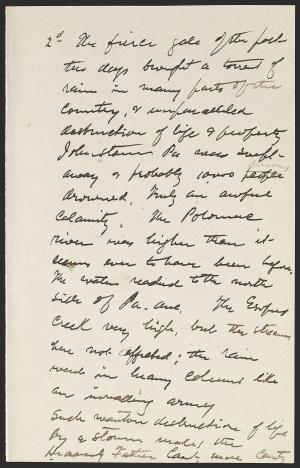 2d The fierce gale of the past
two days brought a torrent of
rain in many parts of the
country, & unparalleled
destruction of life & property
Johnstown Pa was swept
away & probably 10,000 people persons
drowned. Truly an awful
calamity. The Potomac
river was higher than it
seems ever to have been before.
The water reached to the north
side of Pa. ave. The Esopus
Creek very high, but the streams
here not affected; the rain
went in heavy columns like
an invading army
Such wanton destruction of life
by a storm makes the
Heavenly Father Cant more Cants